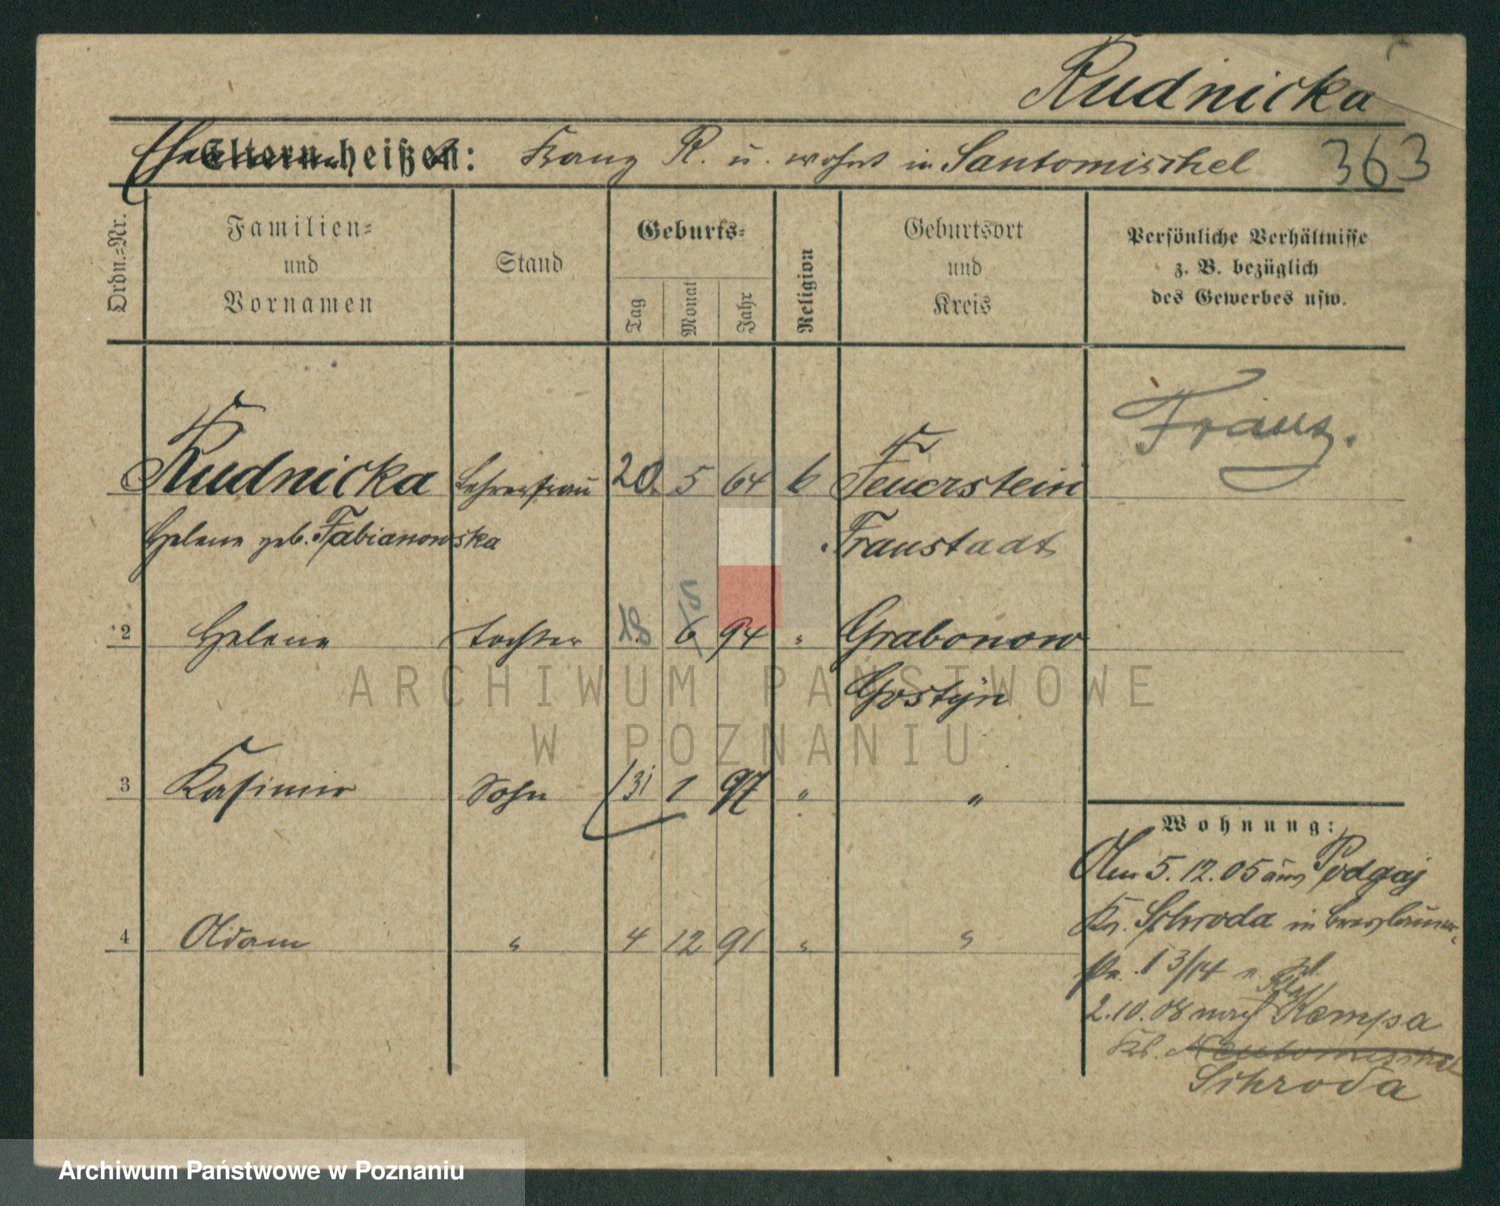 Rudnicka
Ehemann heißt: Franz R. u. wohnt in Santomischel 363
Ordn.=Nr.
Familien=
und
Vornamen
Stand
Geburts=
Tag
Monat
Jahr
Religion
Geburtsort
und
Kreis
Persönliche Verhältnisse
z. B. bezüglich
des Gewerbes usw.
Franz.
Rudnicka Lehrerfrau 20. 5 64 k Feuerstein
Helene geb. Fabianowska Fraustadt
2 Helene Tochter 18 6 5 94 " Grabonow
Gostyn
3 Kasimir Sohn 31 1 97 " "
4 Adam " 4 12 91 " "
Wohnung:
Am 5.12.05 aus Podgaj
Kr. Schroda in Breslauer-
str. 13/14 u.
2.10.08 nach Kempa
Kr. Santomischel
Schroda
ARCHIWUM PAŃSTWOWE
W POZNANIU
Archiwum Państwowe w Poznaniu